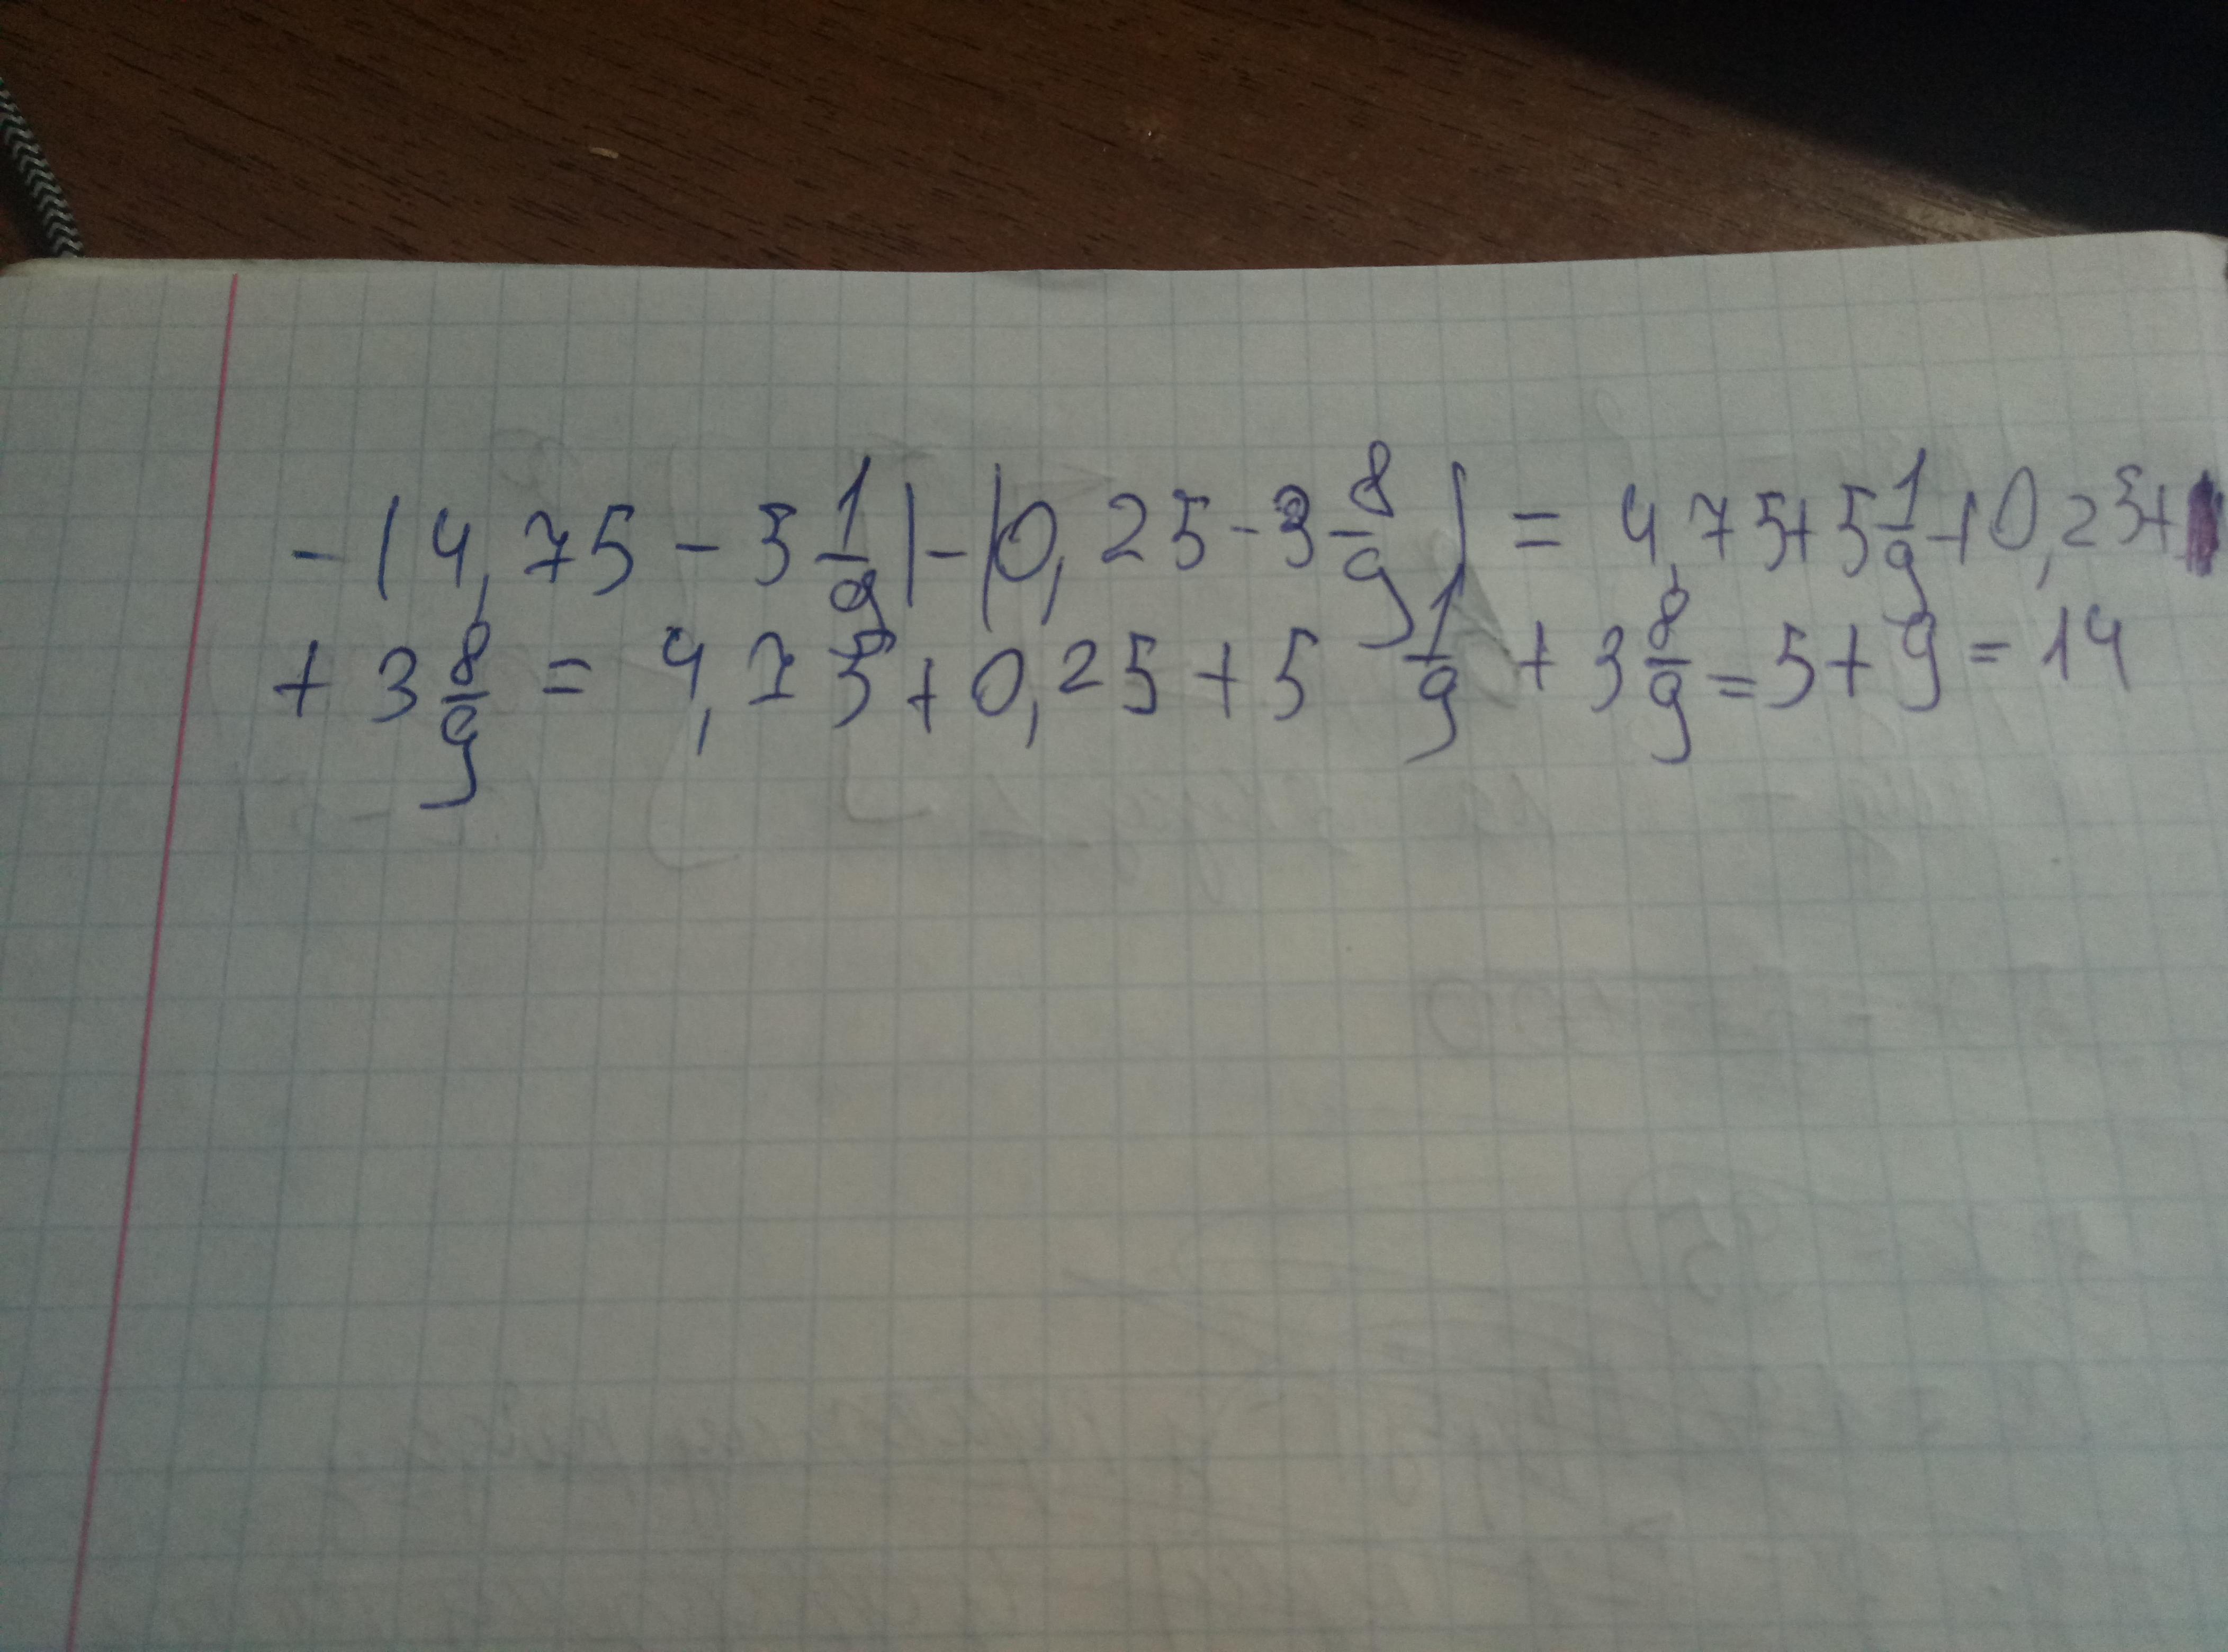 -|4,75 - 5 1/9| - |0,25 - 3 8/9| = 4,75 + 5 1/9 + 0,25 +
+ 3 8/9 = 4,75 + 0,25 + 5 1/9 + 3 8/9 = 5 + 9 = 14